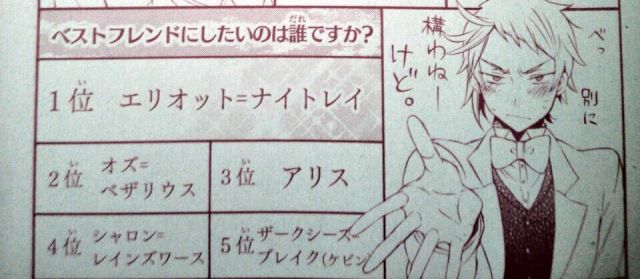 ベストフレンドにしたいのは誰ですか?
だれ
1位 エリオット=ナイトレイ
い
2位 オズ=
い
ベザリウス
3位 アリス
い
4位 シャロン=
い
レインズワース
5位 ザークシーズ=
い
ブレイク(ケビン)
べっ
別に
構わねー
けど。